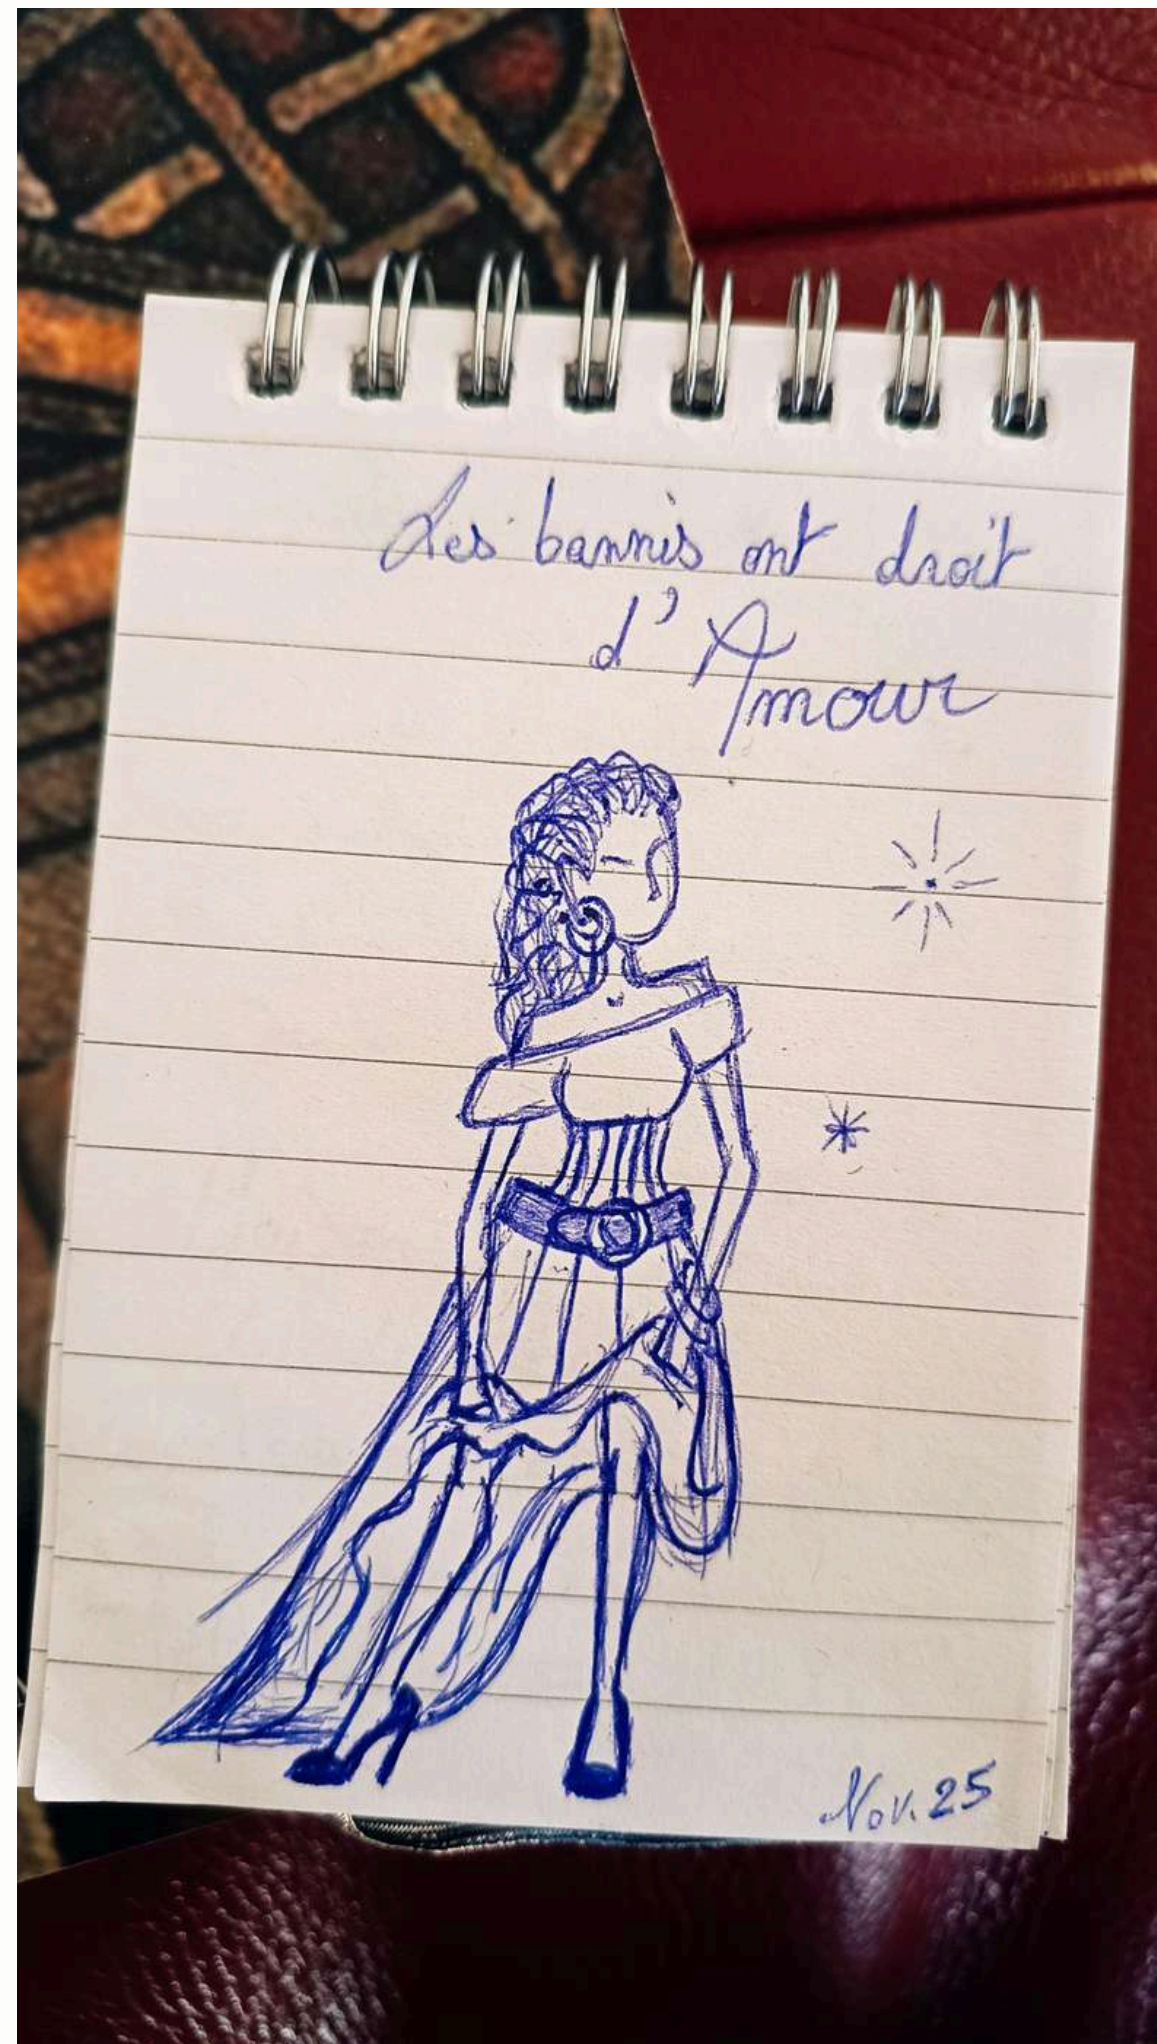 Les bannis ont droit
d'Amour
Nov. 25